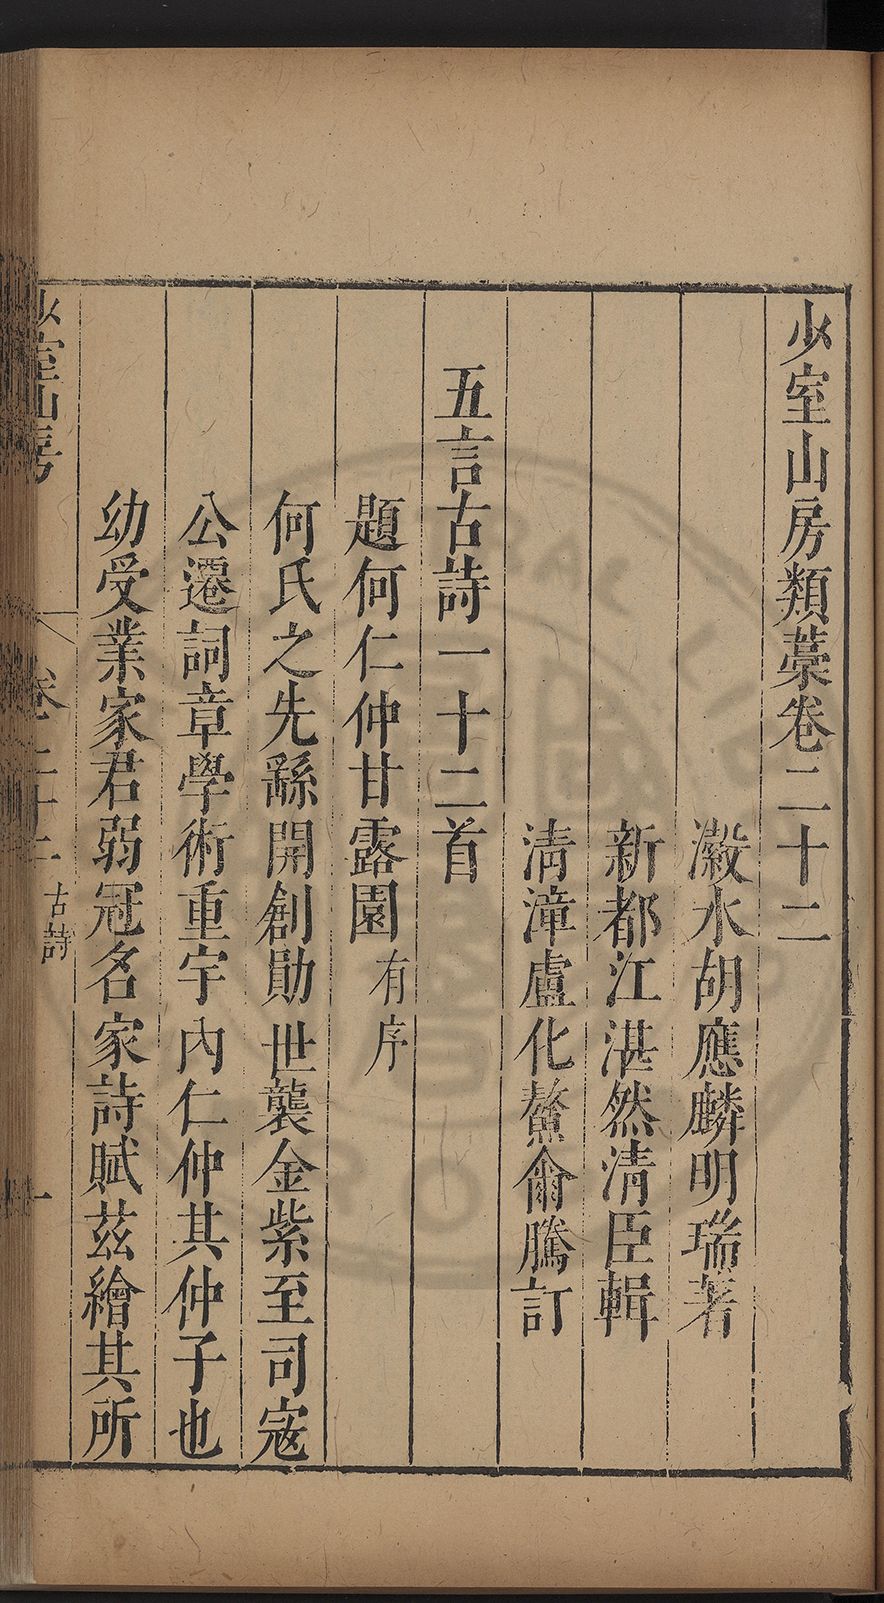 少室山房類藁卷二十二
瀫水胡應麟明瑞著
新都江湛然清臣輯
清漳盧化鰲爾騰訂
五言古詩一十二首
題何仁仲甘露園有序
何氏之先繇開創勛世襲金紫至司寇
公遷詞章學術重宇內仁仲其仲子也
幼受業家君弱冠名家詩賦茲繪其所
少室山房 卷二十二 古詩 一